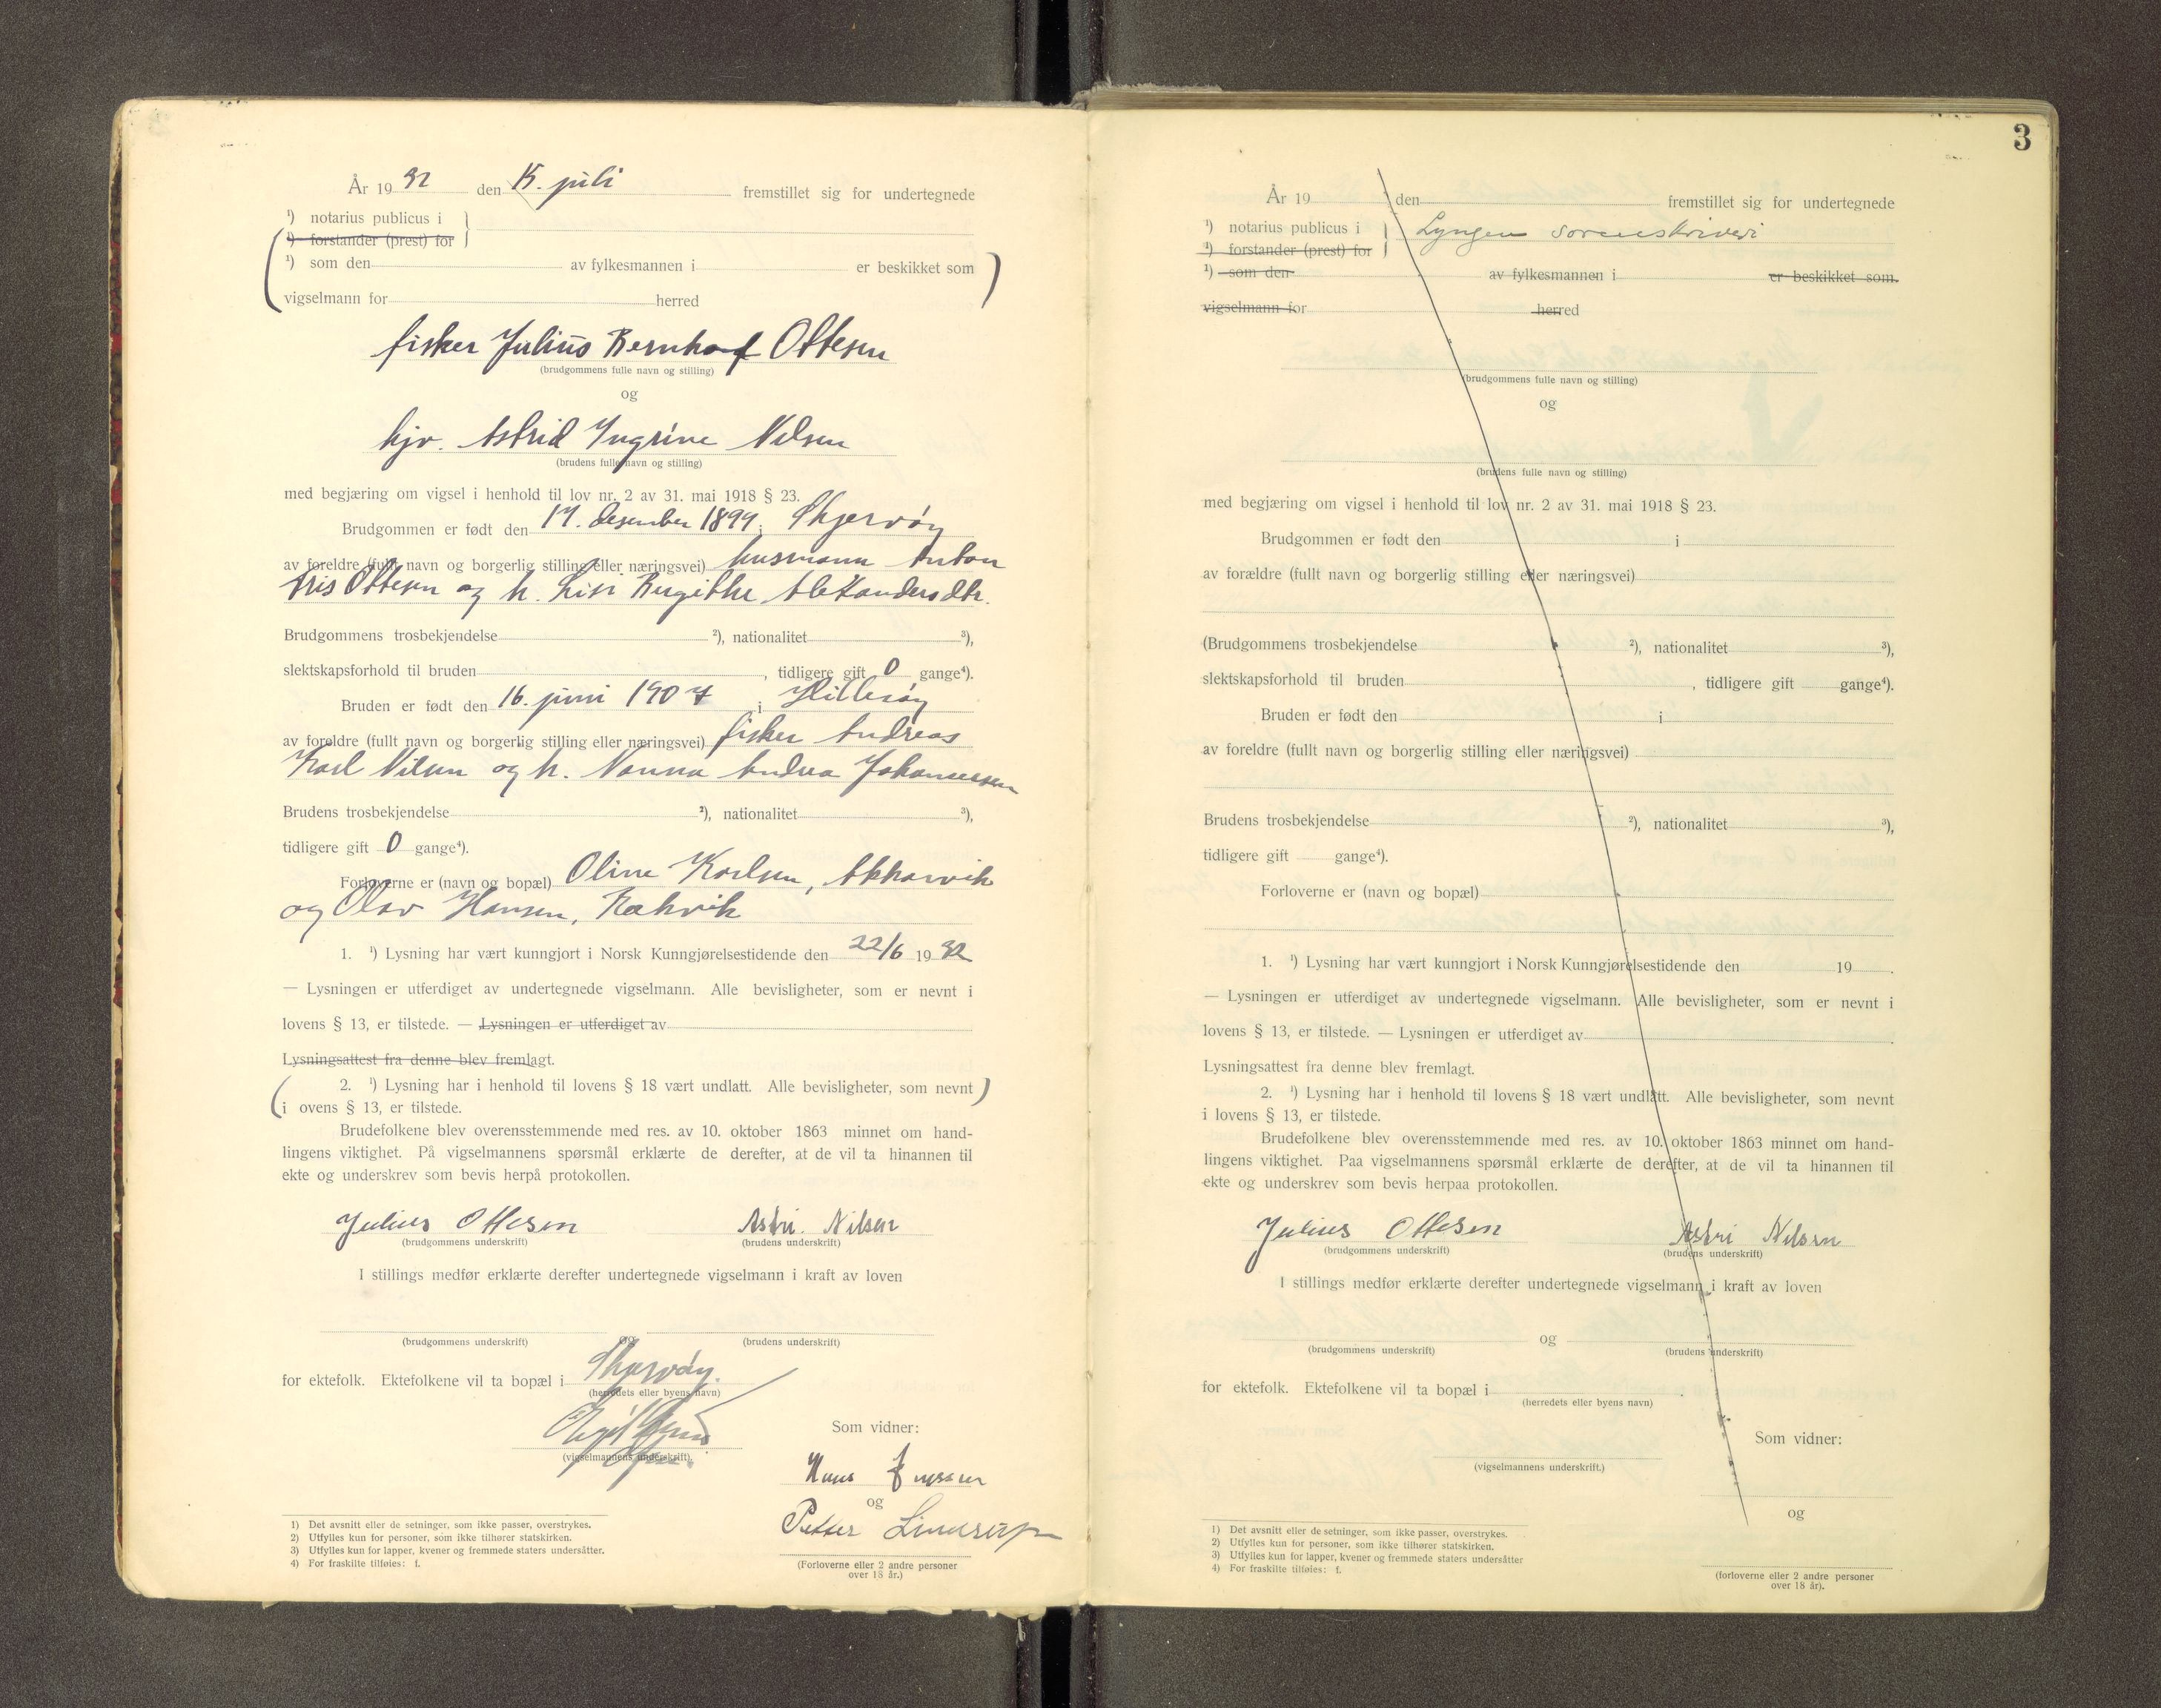 År 19 32 den 15. juli fremstillet sig for undertegnede
¹) notarius publicus i
¹) forstander (prest) for
¹) som den av fylkesmannen i er beskikket som
vigselmann for herred
fisker Julius Bernhof Ottesen
(brudgommens fulle navn og stilling)
og
hjv. Astrid Ingrine Nilsen
(brudens fulle navn og stilling)
med begjæring om vigsel i henhold til lov nr. 2 av 31. mai 1918 § 23.
Brudgommen er født den 17. desember 1899 i Skjervøy
av foreldre (fullt navn og borgerlig stilling eller næringsvei) husmann Anton
Ottesen og h. Lisi Birgithe Aleksandersdtr.
Brudgommens trosbekjendelse ²), nationalitet ³),
slektskapsforhold til bruden , tidligere gift 0 gange⁴).
Bruden er født den 16. juni 1907 i Hillesøy
av foreldre (fullt navn og borgerlig stilling eller næringsvei) fisker Andreas
Karl Nilsen og h. Nanna Andrea Johannessen
Brudens trosbekjendelse ²), nationalitet ³),
tidligere gift 0 gange⁴).
Forloverne er (navn og bopæl) Oline Karlsen, Akkarvik
og Olav Hansen, Rakvik
1. ¹) Lysning har vært kunngjort i Norsk Kunngjørelsestidende den 22/6 19 32
— Lysningen er utferdiget av undertegnede vigselmann. Alle bevisligheter, som er nevnt i
lovens § 13, er tilstede. — Lysningen er utferdiget av
Lysningsattest fra denne blev fremlagt.
2. ¹) Lysning har i henhold til lovens § 18 vært undlatt. Alle bevisligheter, som nevnt
i ovens § 13, er tilstede.
Brudefolkene blev overensstemmende med res. av 10. oktober 1863 minnet om hand-
lingens viktighet. På vigselmannens spørsmål erklærte de derefter, at de vil ta hinannen til
ekte og underskrev som bevis herpå protokollen.
Julius Ottesen Astri. Nilsen
(brudgommens underskrift) (brudens underskrift)
I stillings medfør erklærte derefter undertegnede vigselmann i kraft av loven
og
(brudgommens underskrift) (brudens underskrift)
for ektefolk. Ektefolkene vil ta bopæl i Skjervøy.
(herredets eller byens navn)
Som vidner:
(vigselmannens underskrift).
Hans
og
Petter Lindrup
(Forloverne eller 2 andre personer
over 18 år.)
1) Det avsnitt eller de setninger, som ikke passer, overstrykes.
2) Utfylles kun for personer, som ikke tilhører statskirken.
3) Utfylles kun for lapper, kvener og fremmede staters undersåtter.
4) For fraskilte tilføies: f.
3
År 19 den fremstillet sig for undertegnede
¹) notarius publicus i Lyngen sorenskriveri
¹) forstander (prest) for
¹) som den av fylkesmannen i er beskikket som.
vigselmann for herred
(brudgommens fulle navn og stilling)
og
(brudens fulle navn og stilling)
med begjæring om vigsel i henhold til lov nr. 2 av 31. mai 1918 § 23.
Brudgommen er født den i
av forældre (fullt navn og borgerlig stilling eller næringsvei)
(Brudgommens trosbekjendelse ²), nationalitet ³),
slektskapsforhold til bruden , tidligere gift gange⁴).
Bruden er født den i
av foreldre (fullt navn og borgerlig stilling eller næringsvei)
Brudens trosbekjendelse ²), nationalitet ³),
tidligere gift gange⁴).
Forloverne er (navn og bopæl)
1. ¹) Lysning har vært kunngjort i Norsk Kunngjørelsestidende den 19 .
— Lysningen er utferdiget av undertegnede vigselmann. Alle bevisligheter, som er nevnt i
lovens § 13, er tilstede. — Lysningen er utferdiget av
Lysningsattest fra denne blev fremlagt.
2. ¹) Lysning har i henhold til lovens § 18 vært undlatt. Alle bevisligheter, som nevnt
i lovens § 13, er tilstede.
Brudefolkene blev overensstemmende med res. av 10. oktober 1863 minnet om hand-
lingens viktighet. Paa vigselmannens spørsmål erklærte de derefter, at de vil ta hinannen til
ekte og underskrev som bevis herpaa protokollen.
Julius Ottesen Astri Nilsen
(brudgommens underskrift) (brudens underskrift)
I stillings medfør erklærte derefter undertegnede vigselmann i kraft av loven
og
(brudgommens underskrift) (brudens underskrift)
for ektefolk. Ektefolkene vil ta bopæl i
(herredets eller byens navn)
Som vidner:
(vigselmannens underskrift.)
og
(forloverne eller 2 andre personer
over 18 år).
1) Det avsnitt eller de setninger, som ikke passer, overstrykes.
2) Utfylles kun for personer, som ikke tilhører statskirken.
3) Utfylles kun for lapper, kvener og fremmede staters undersåtter
4) For fraskilte tilføies: f.